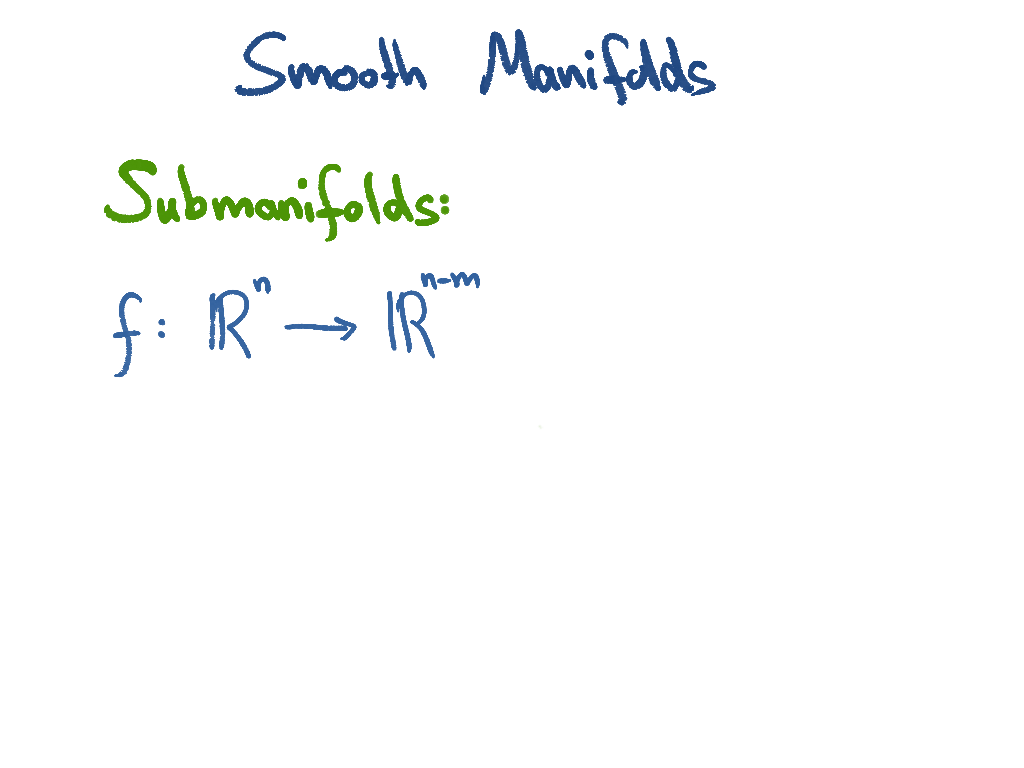 Smooth Manifolds
Submanifolds:
f: ℝⁿ ⟶ ℝⁿ⁻ᵐ